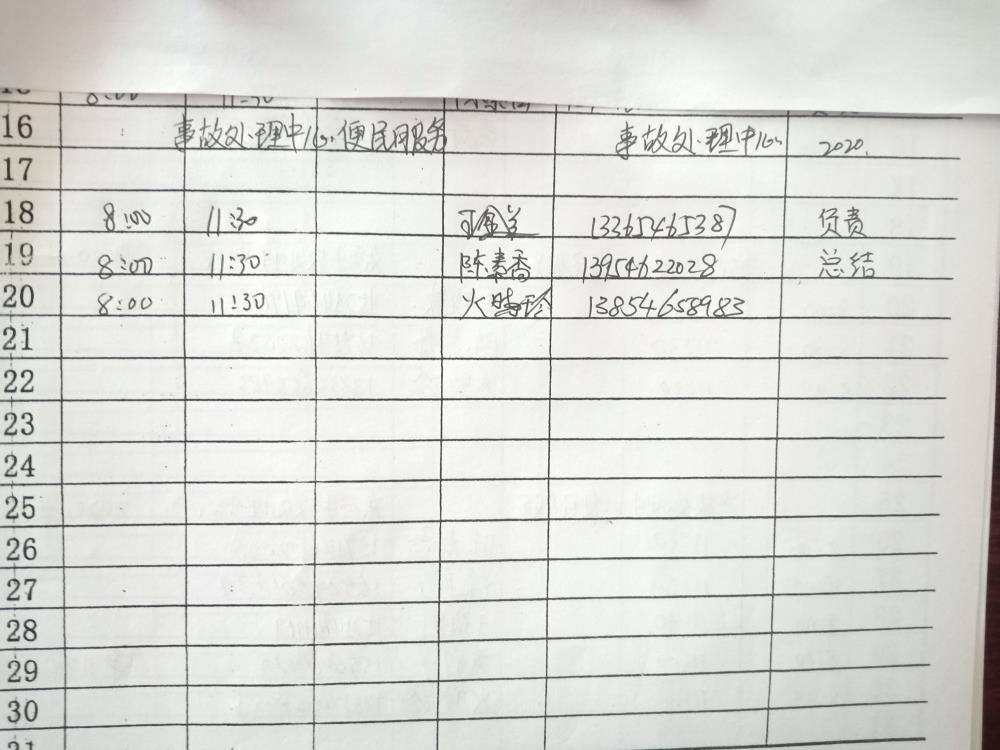 8:00 11:30
16 事故处理中心便民服务 事故处理中心 2020.
17
18 8:00 11:30 13365465387 负责
19 8:00 11:30 陈素香 13954622028 总结
20 8:00 11:30 13854658983
21
22
23
24
25
26
27
28
29
30